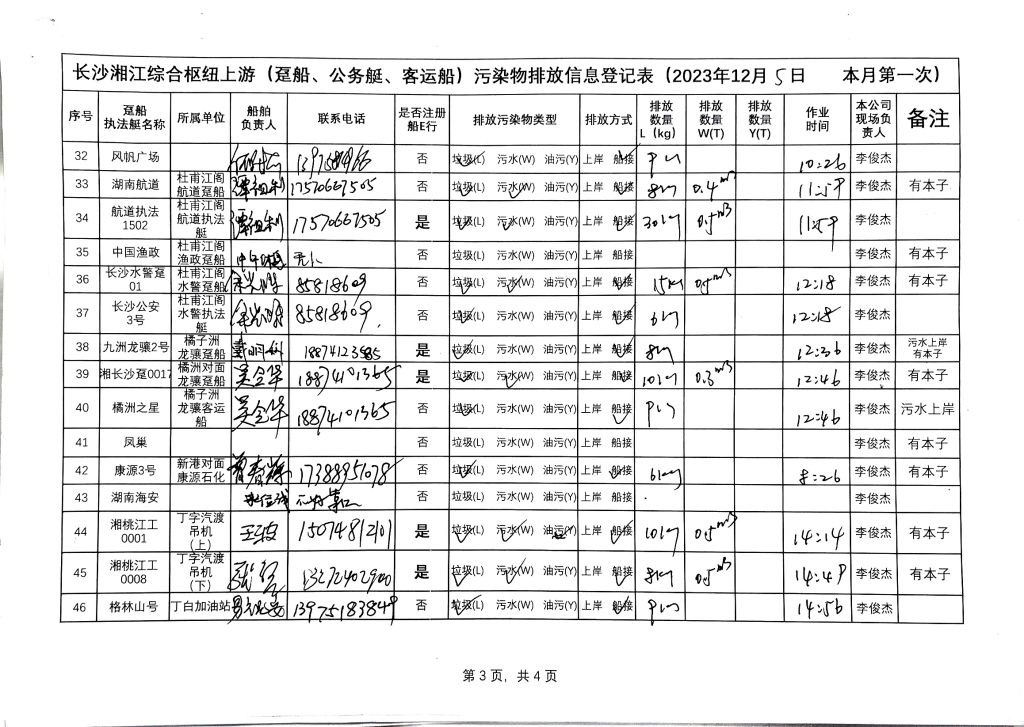 长沙湘江综合枢纽上游（趸船、公务艇、客运船）污染物排放信息登记表（2023年12月5日 本月第一次）
序号 趸船执法艇名称 所属单位 船舶负责人 联系电话 是否注册船E行 排放污染物类型 排放方式 排放数量L（kg） 排放数量W(T) 排放数量Y(T) 作业时间 本公司现场负责人 备注
32 风帆广场 否 垃圾(L) 污水(W) 油污(Y) 上岸 船接 10:26 李俊杰
33 湖南航道 杜甫江阁航道趸船 17570667505 否 垃圾(L) 污水(W) 油污(Y) 上岸 船接 8kg 0.4m3 11:59 李俊杰 有本子
34 航道执法1502 杜甫江阁航道执法艇 17570667505 是 垃圾(L) 污水(W) 油污(Y) 上岸 船接 30kg 0.5m3 11:59 李俊杰
35 中国渔政 杜甫江阁渔政趸船 无人 否 垃圾(L) 污水(W) 油污(Y) 上岸 船接 李俊杰 有本子
36 长沙水警趸01 杜甫江阁水警趸船 85818609 否 垃圾(L) 污水(W) 油污(Y) 上岸 船接 15kg 0.5m3 12:18 李俊杰 有本子
37 长沙公安3号 杜甫江阁水警执法艇 85818609 否 垃圾(L) 污水(W) 油污(Y) 上岸 船接 6kg 12:18 李俊杰
38 九洲龙骧2号 橘子洲龙骧趸船 18874123585 是 垃圾(L) 污水(W) 油污(Y) 上岸 船接 8kg 12:36 李俊杰 污水上岸有本子
39 湘长沙趸0017 橘洲对面龙骧趸船 吴全华 18874101365 是 垃圾(L) 污水(W) 油污(Y) 上岸 船接 10kg 0.3m3 12:46 李俊杰 有本子
40 橘洲之星 橘子洲龙骧客运船 吴全华 18874101365 否 垃圾(L) 污水(W) 油污(Y) 上岸 船接 9kg 12:46 李俊杰 污水上岸
41 凤巢 否 垃圾(L) 污水(W) 油污(Y) 上岸 船接 李俊杰 有本子
42 康源3号 新港对面康源石化 17388951078 否 垃圾(L) 污水(W) 油污(Y) 上岸 船接 6kg 8:26 李俊杰 有本子
43 湖南海安 水位浅 不好靠 否 垃圾(L) 污水(W) 油污(Y) 上岸 船接 李俊杰
44 湘桃江工0001 丁字汽渡吊机（上） 15074812101 是 垃圾(L) 污水(W) 油污(Y) 上岸 船接 10kg 0.5m3 14:14 李俊杰 有本子
45 湘桃江工0008 丁字汽渡吊机（下） 13272402900 是 垃圾(L) 污水(W) 油污(Y) 上岸 船接 8kg 0.5m3 14:49 李俊杰 有本子
46 格林山号 丁白加油站 13975183849 否 垃圾(L) 污水(W) 油污(Y) 上岸 船接 9kg 14:56 李俊杰
第 3 页，共 4 页